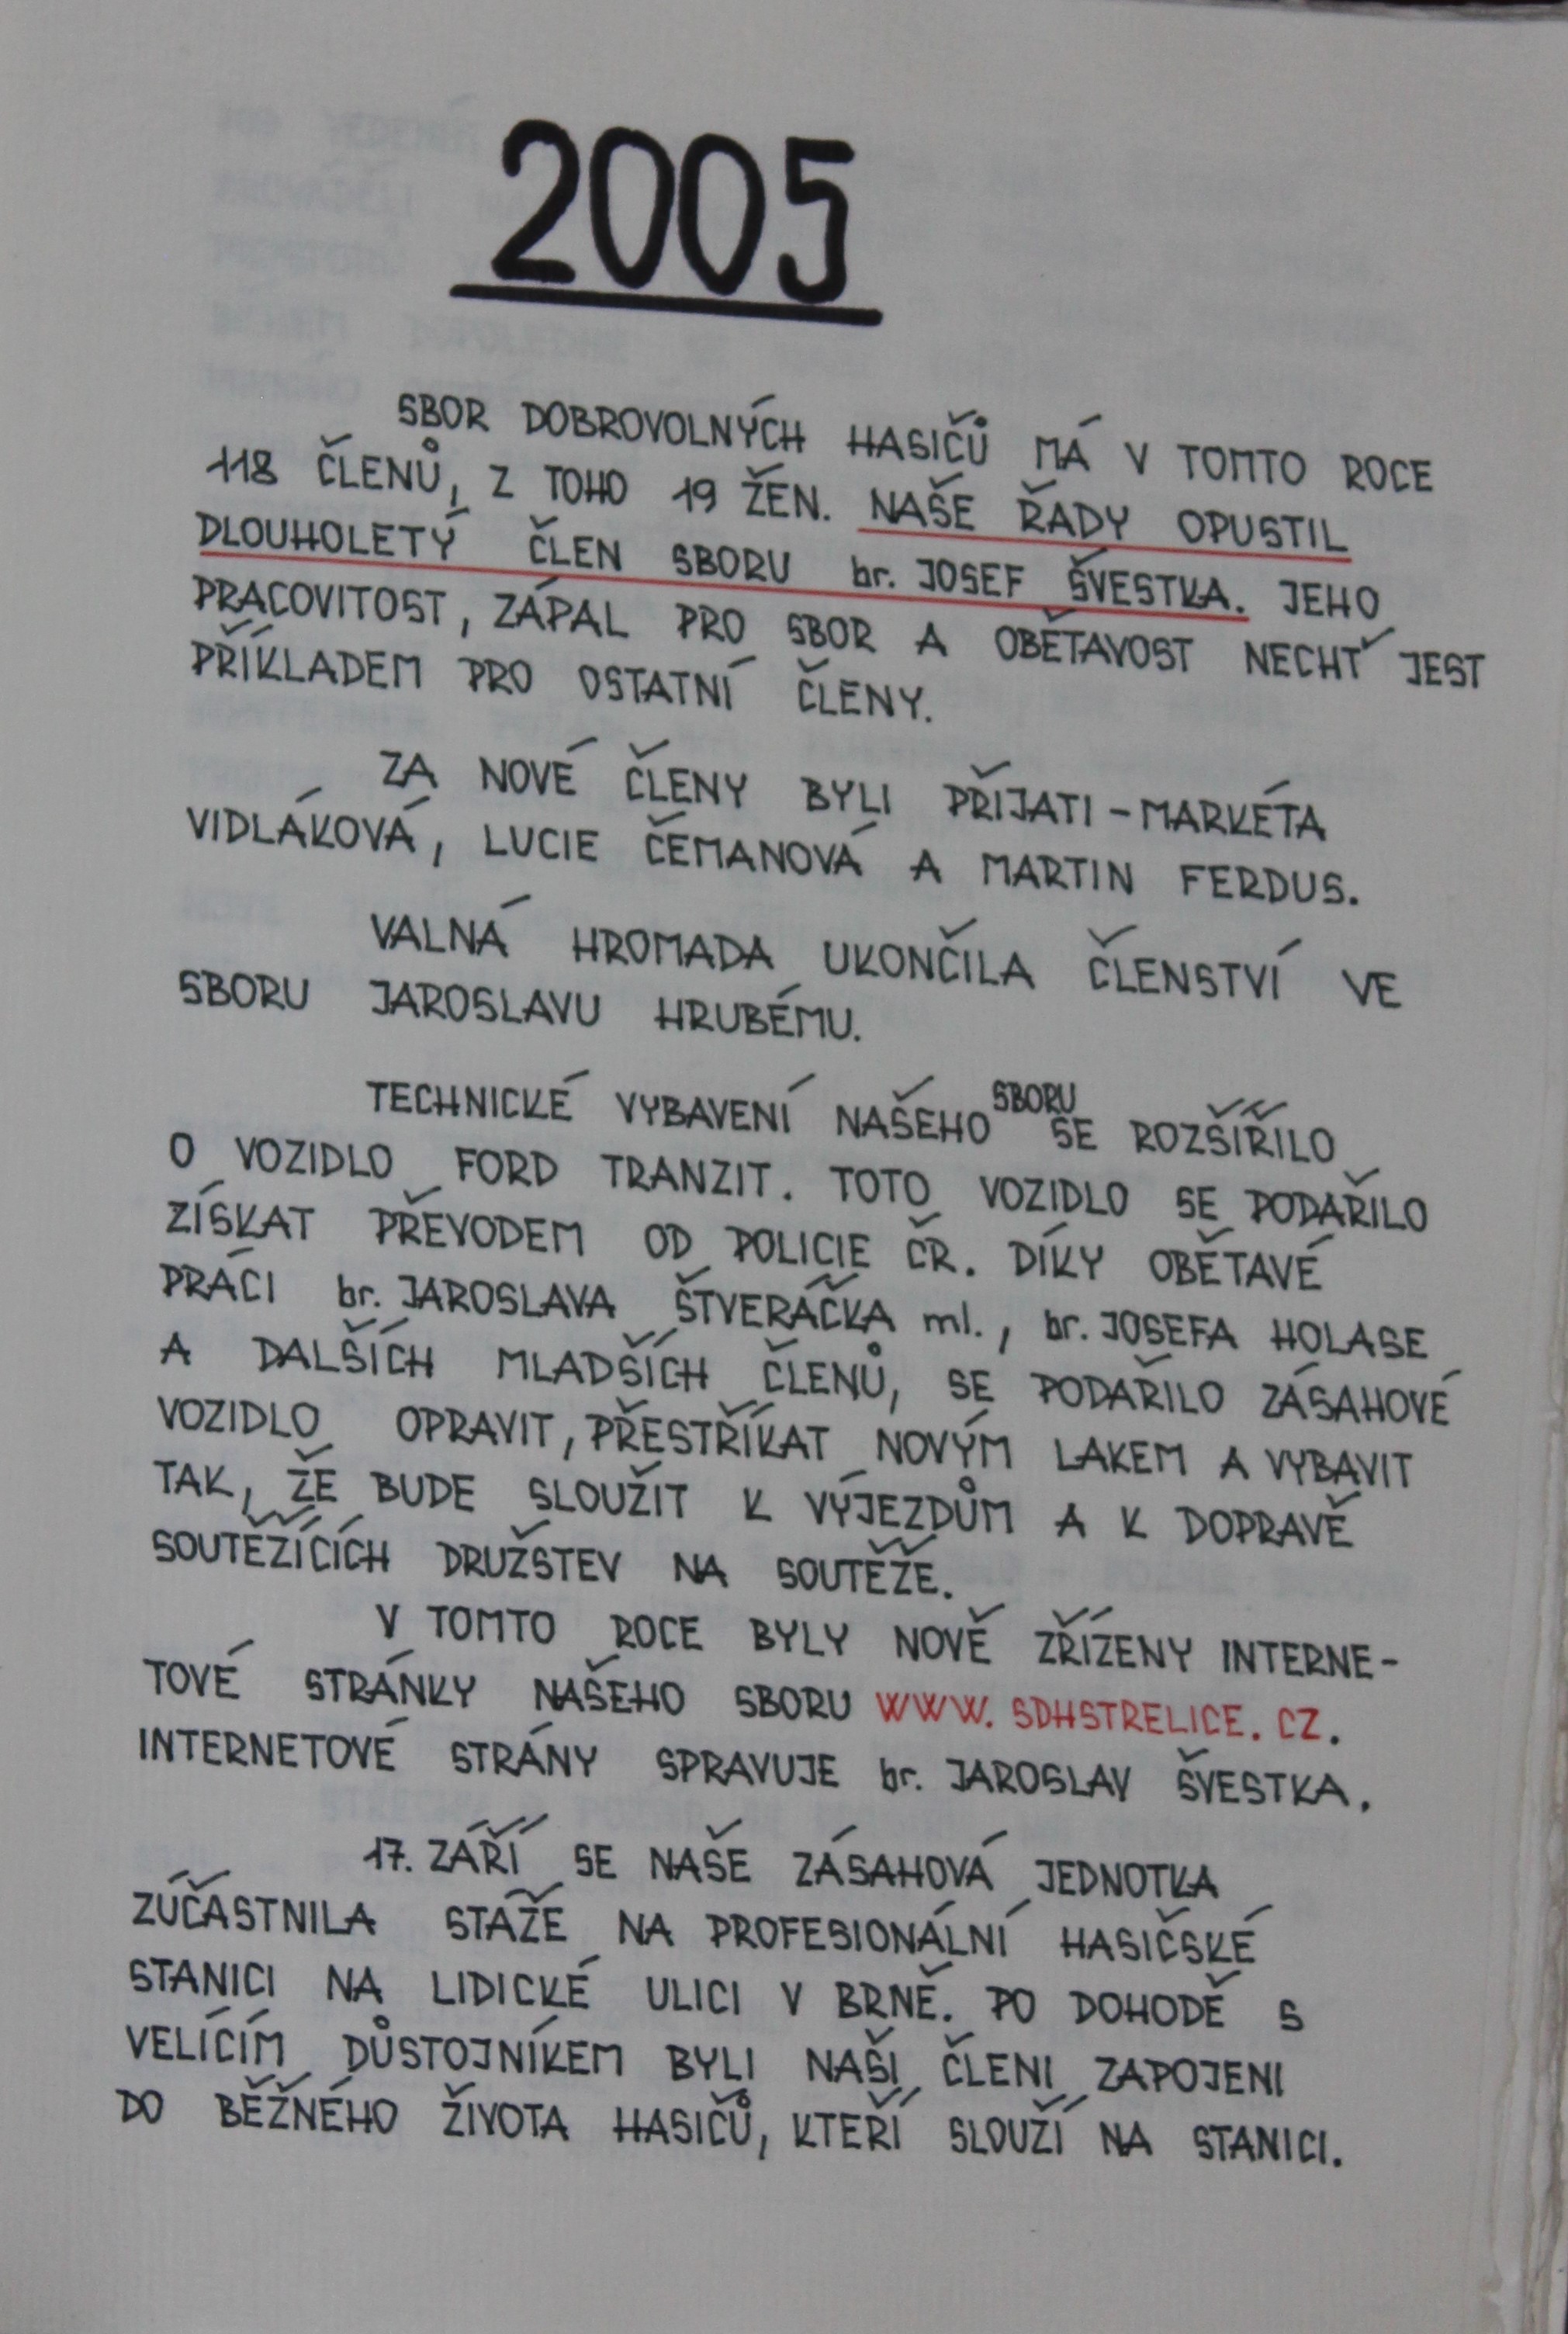 2005
SBOR DOBROVOLNÝCH HASIČŮ MÁ V TOMTO ROCE
118 ČLENŮ, Z TOHO 19 ŽEN. NAŠE ŘADY OPUSTIL
DLOUHOLETÝ ČLEN SBORU br. JOSEF ŠVESTKA. JEHO
PRACOVITOST, ZÁPAL PRO SBOR A OBĚTAVOST NECHŤ JEST
PŘÍKLADEM PRO OSTATNÍ ČLENY.
ZA NOVÉ ČLENY BYLI PŘIJATI - MARKÉTA
VIDLÁKOVÁ, LUCIE ČEMANOVÁ A MARTIN FERDUS.
VALNÁ HROMADA UKONČILA ČLENSTVÍ VE
SBORU JAROSLAVU HRUBÉMU.
TECHNICKÉ VYBAVENÍ NAŠEHO SBORU SE ROZŠÍŘILO
O VOZIDLO FORD TRANZIT. TOTO VOZIDLO SE PODAŘILO
ZÍSKAT PŘEVODEM OD POLICIE ČR. DÍKY OBĚTAVÉ
PRÁCI br. JAROSLAVA ŠTVERÁČKA ml., br. JOSEFA HOLASE
A DALŠÍCH MLADŠÍCH ČLENŮ, SE PODAŘILO ZÁSAHOVÉ
VOZIDLO OPRAVIT, PŘESTŘÍKAT NOVÝM LAKEM A VYBAVIT
TAK, ŽE BUDE SLOUŽIT K VÝJEZDŮM A K DOPRAVĚ
SOUTĚŽÍCÍCH DRUŽSTEV NA SOUTĚŽE.
V TOMTO ROCE BYLY NOVĚ ZŘÍZENY INTERNE-
TOVÉ STRÁNKY NAŠEHO SBORU WWW. SDHSTRELICE. CZ.
INTERNETOVÉ STRÁNY SPRAVUJE br. JAROSLAV ŠVESTKA.
17. ZÁŘÍ SE NAŠE ZÁSAHOVÁ JEDNOTKA
ZÚČASTNILA STÁŽE NA PROFESIONÁLNÍ HASIČSKÉ
STANICI NA LIDICKÉ ULICI V BRNĚ. PO DOHODĚ S
VELÍCÍM DŮSTOJNÍKEM BYLI NAŠI ČLENI ZAPOJENI
DO BĚŽNÉHO ŽIVOTA HASIČŮ, KTEŘÍ SLOUŽÍ NA STANICI.